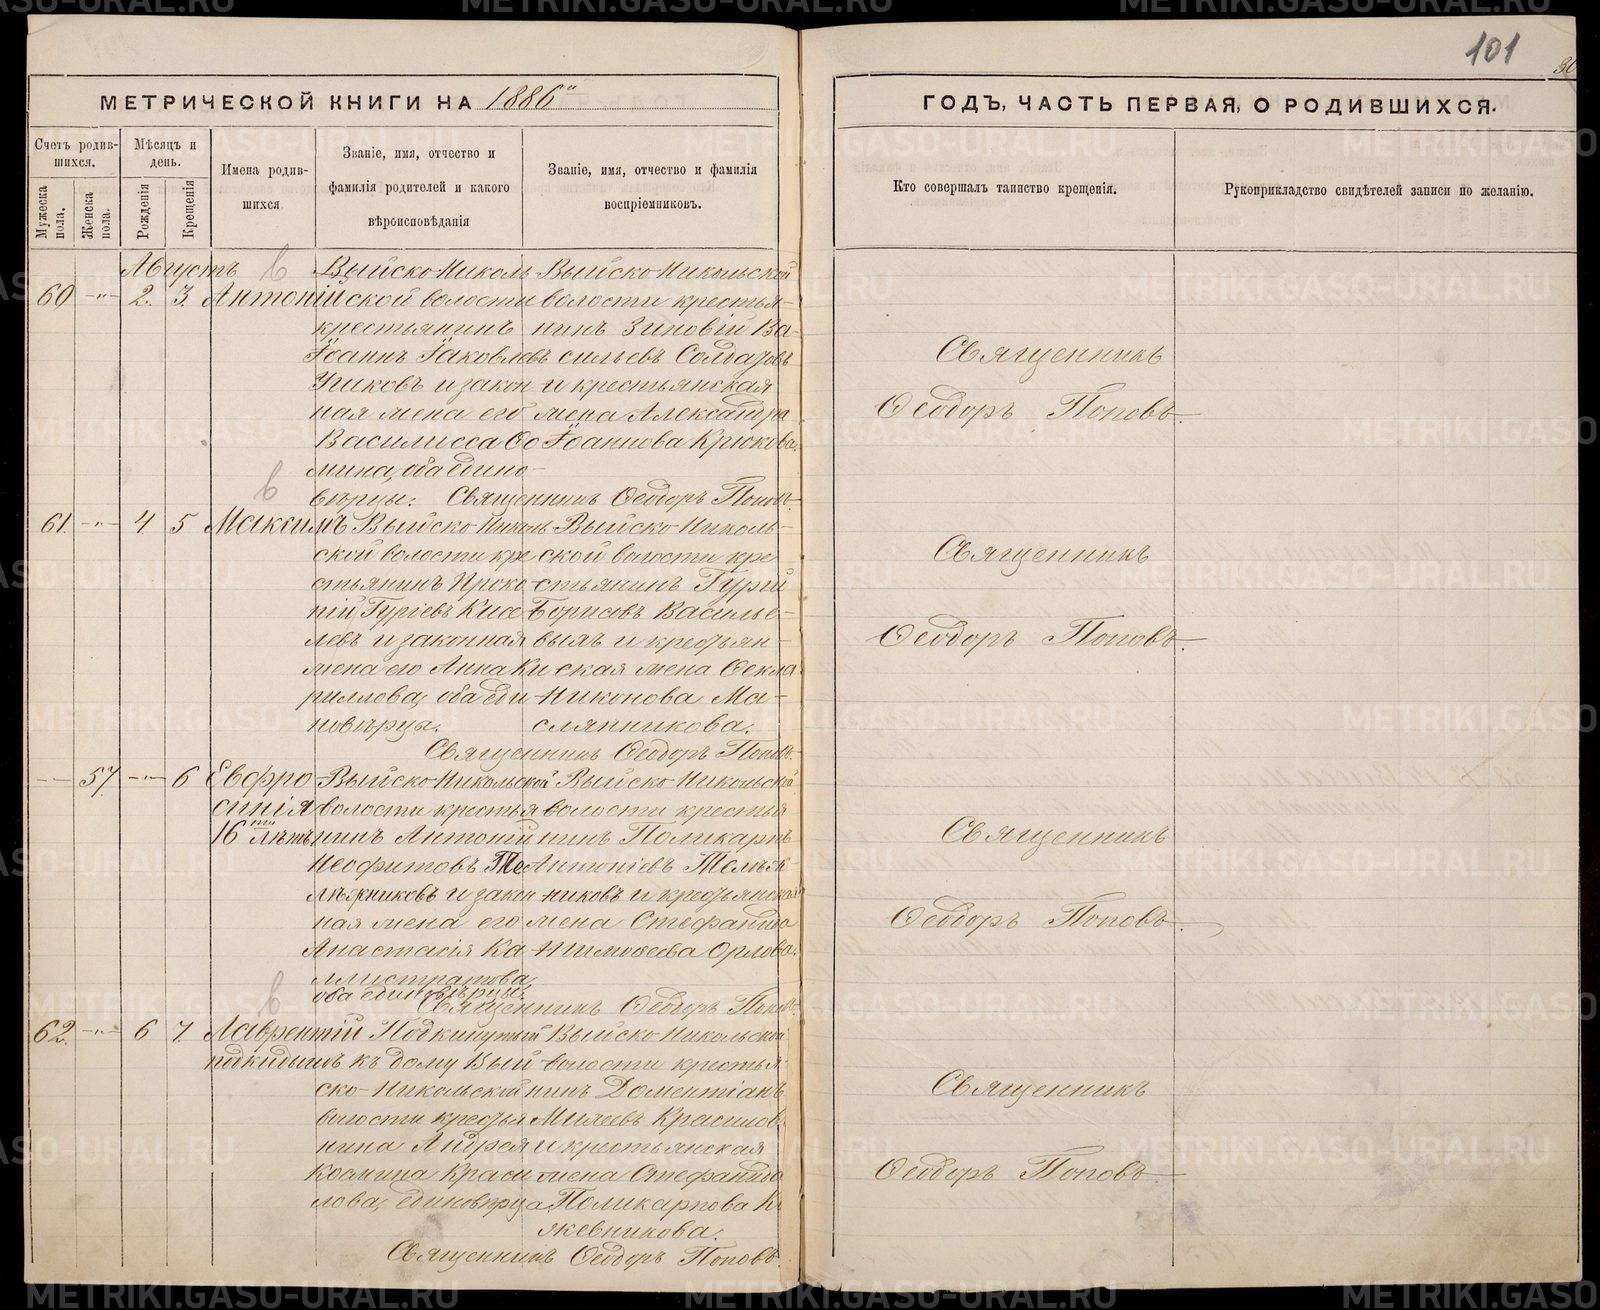 101
МЕТРИЧЕСКОЙ КНИГИ НА 1886й
ГОДЪ, ЧАСТЬ ПЕРВАЯ, О РОДИВШИХСЯ.
Счетъ родив-
шихся.
Мужеска пола.
Женска пола.
Мѣсяцъ и
день.
Рожденія
Крещенія
Имена родив-
шихся
Званіе, имя, отчество и
фамилія родителей и какого
вѣроисповѣданія
Званіе, имя, отчество и фамилія
воспріемниковъ.
Кто совершалъ таинство крещенія.
Рукоприкладство свидѣтелей записи по желанію.
Августъ
60 —„— 2. 3. Антоній
Выйско-Николь
ской волости
крестьянинъ
Іоаннъ Іаковлевъ
и закон
ная жена его
Василисса Ѳо
мина, оба едино-
вѣрцы.
Выйско-Никольской
волости крестья-
нинъ Зиновій Ва-
сильевъ Солдатовъ
и крестьянская
жена Александра
Іоаннова Крюкова.
Священникъ Ѳеодоръ Поповъ.
Священникъ
Ѳеодоръ Поповъ.
61. —„— 4. 5 Максимъ
Выйско-Николь
ской волости кре
стьянинъ Проко
пій Гуріевъ Кисе
левъ и законная
жена его Анна Ки
риллова, оба еди
новѣрцы.
Выйско-Николь-
ской волости кре
стьянинъ Гурій
Борисовъ Василье-
вымъ и крестьян-
ская жена Ѳекла
Никонова Ма-
слянникова.
Священникъ Ѳеодоръ Поповъ.
Священникъ
Ѳеодоръ Поповъ.
— 57. —„— 6 Евфро
синія
16ти лѣтъ
Выйско-Никольской
волости крестья
нинъ Антоній
Неофитовъ Те
лѣжниковъ и закон
ная жена его
Анастасія Ка
ллистратова,
оба единовѣрцы.
Выйско-Никольской
волости крестья
нинъ Поликарпъ
Антоніевъ Телѣж
никовъ и крестьянская
жена Стефанида
Тимоѳеева Орлова.
Священникъ Ѳеодоръ Поповъ.
Священникъ
Ѳеодоръ Поповъ.
62. —„— 6 7. Лаврентій
подкидышъ
Подкинутый
къ дому Вый
ско-Никольской
волости крестья
нина Андрея
Космина Краси
лова, единовѣрца.
Выйско-Никольской
волости крестья-
нинъ Дометіанъ
Красиловъ
и крестьянская
жена Стефанида
Поликарпова К
яжевникова.
Священникъ Ѳеодоръ Поповъ.
Священникъ
Ѳеодоръ Поповъ.
METRIKI.GASO-URAL.RU